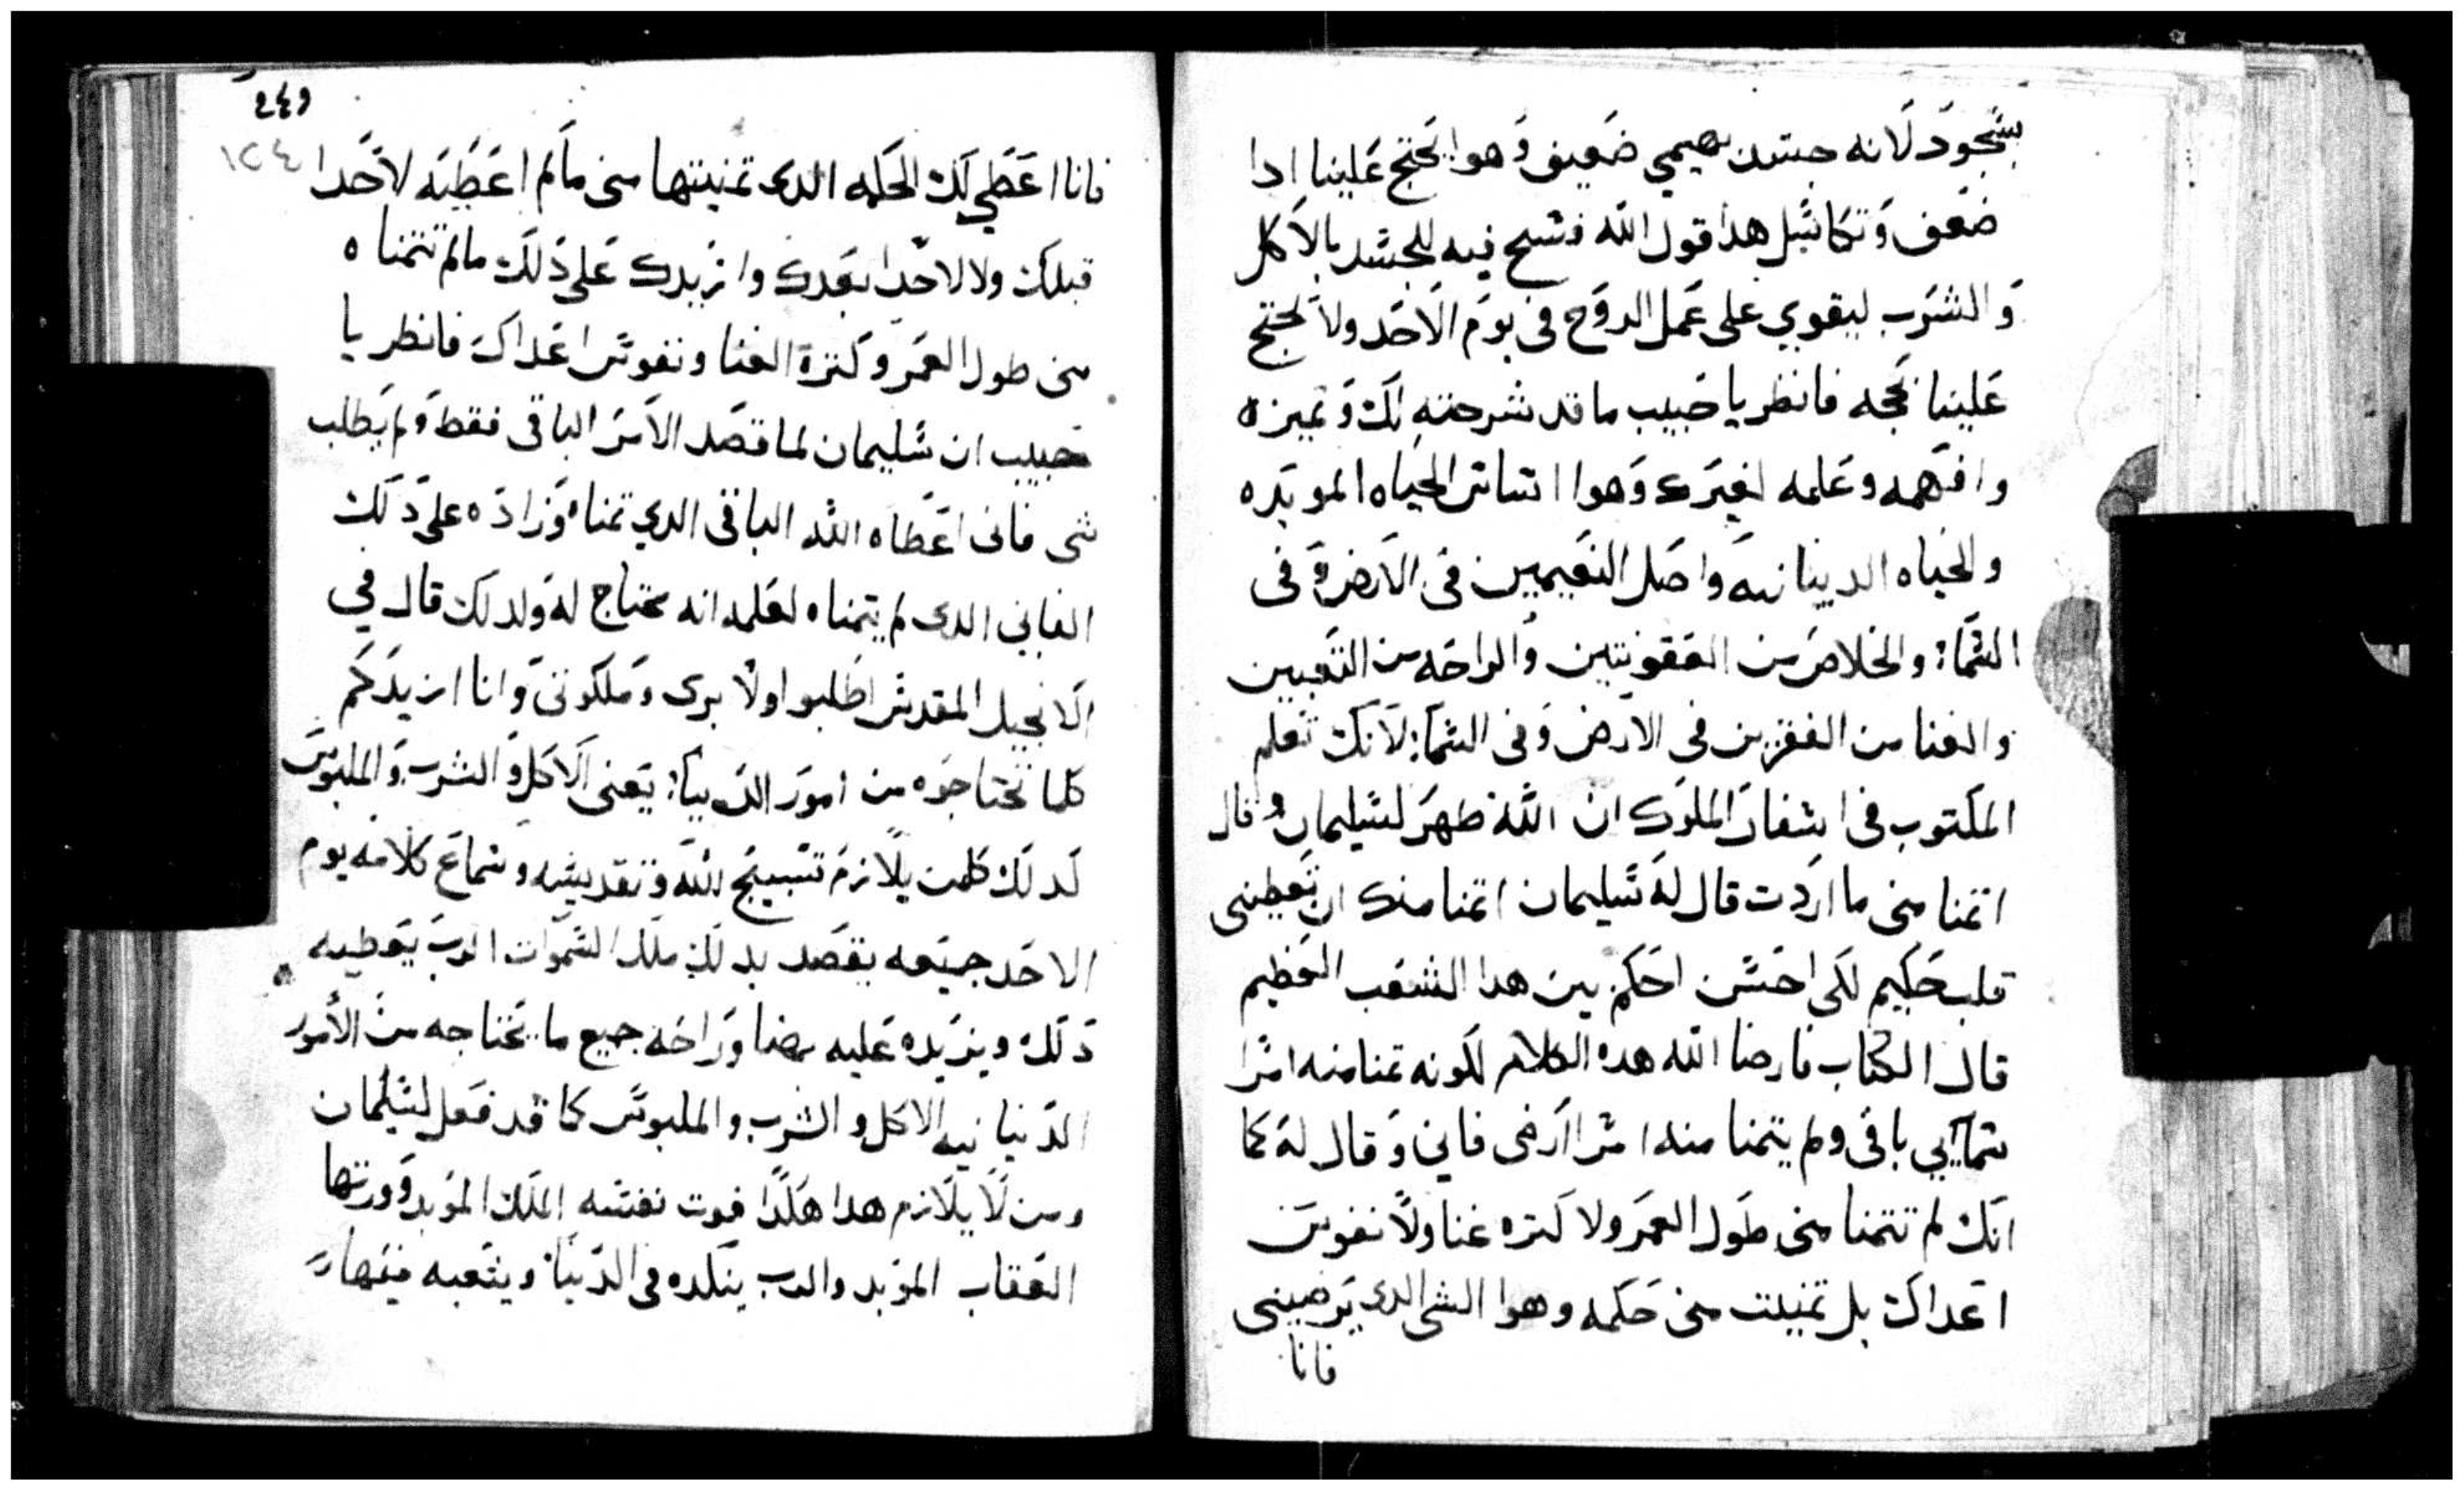 بسجود لانه جسد بهيمي ضعيف وهوا يحتج علينا ادا
ضعف وتكاسل هدا قول الله فسح فيه للجسد بالاكل
والشرب ليقوي على عمل الروح في يوم الاحد ولا يحتج
علينا بحجه فانظر يا حبيب ما قد شرحته لك وتميزه
وافهمه وعلمه لغيرك وهوا اساس الحياه الموبده
والحياه الدنيانيه واصل النعيمين في الارض وفي
السما: والخلاص من العقوبتين والراحه من التعبين
والغنا من الفقرين في الارض وفي السما: لانك تعلم
المكتوب في اسفار الملوك ان الله ظهر لسليمان وقال
اتمنا مني ما اردت قال له سليمان اتمنا منك ان تعطيني
قلب حكيم لكي احسن احكم بين هدا الشعب العظيم
قال الكتاب فارضا الله هده الكلام لكونه تمنا منه امرا
سمايي باقي ولم يتمنا منه امرا ارضي فاني وقال له كما
انك لم تتمنا مني طول العمر ولا كتره غنا ولا نفوس
اعداك بل تمنيت مني حكمه وهوا الشي الدي يرضيني
فانا
٢٤٩
١٢٤
فانا اعطي لك الحكمه الدي تمنيتها مني مالم اعطيه لاحدا
قبلك ولا لاحدا بعدك وازيدك على دلك مالم تتمناه
مني طول العمر وكترة الغنا ونفوس اعداك فانظر يا
حبيب ان سليمان لما قصد الامر الباقي فقط ولم يطلب
شي فاني اعطاه الله الباقي الدي تمناه وزاده على دلك
الفاني الدي لم يتمناه لعلمه انه محتاج له ولدلك قال في
الانجيل المقدس اطلبوا اولا بري وملكوتي وانا ازيدكم
كلما تحتاجوه من امور الدنيا: يعني الاكل والشرب والملبوس
لدلك كلمن يلازم تسبيح الله وتقديسه وسماع كلامه يوم
الاحد جميعه يقصد بدلك ملك السموات الرب يعطيه
دلك ويزيده عليه رضا وراحه جميع ما يحتاجه من الامور
الدنيانيه الاكل والشرب والملبوس كما قد فعل لسليمان
ومن لا يلازم هدا هكدا فوت نفسه الملك الموبد وورتها
العقاب الموبد والرب ينكده في الدنيا ويتعبه فيها